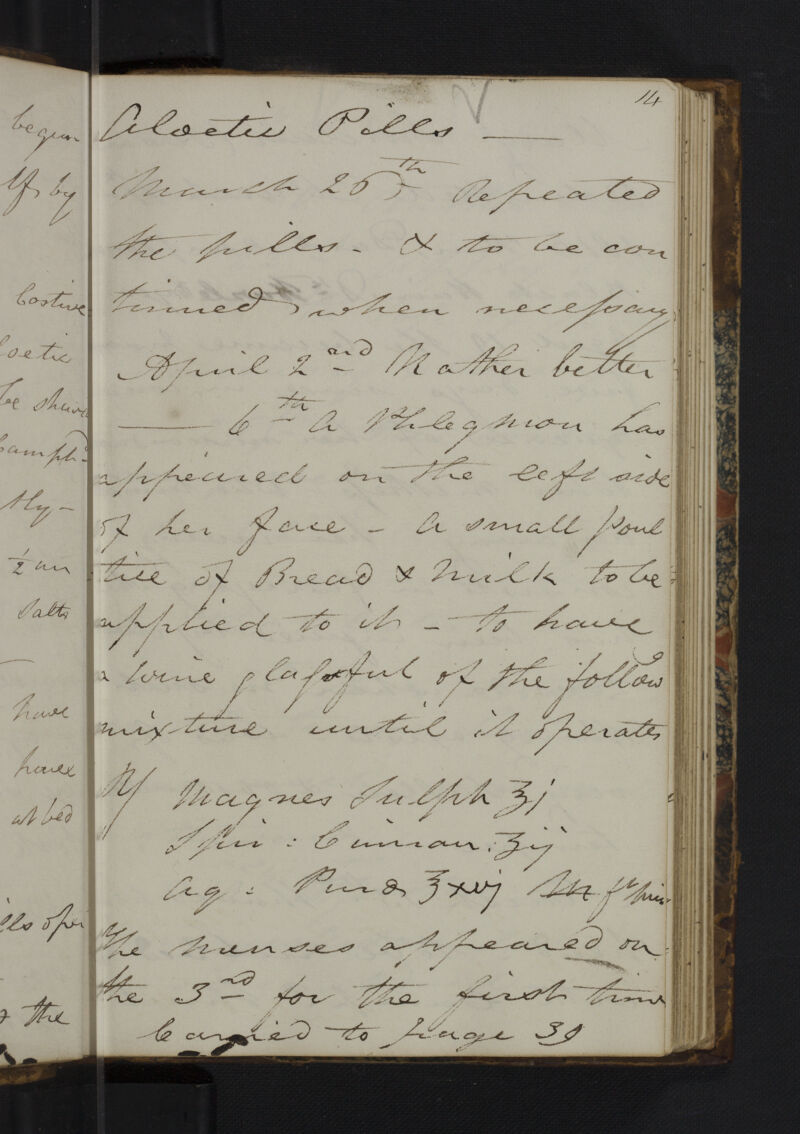 begun
If by
Costive
loetic
be shave
Camph
½ an
Salts
have
have
at bed
& the
14
Aloetic Pills —
March 26th Repeated
the pills - & to be con
tinued when necessary
April 2nd Rather better
— 6th A Phlegmon has
appeared on the left side
of her face - A small Poul
tice of Bread & Milk to be
applied to it - to have
a wine glassful of the follow
mixture until it operates
R/ Magnes Sulph ℥j
Spir : Cinnam : ℥ij
Aq : Puræ ℥xvj M ft
The menses appeared on
the 3rd for the first time
Carried to page 39